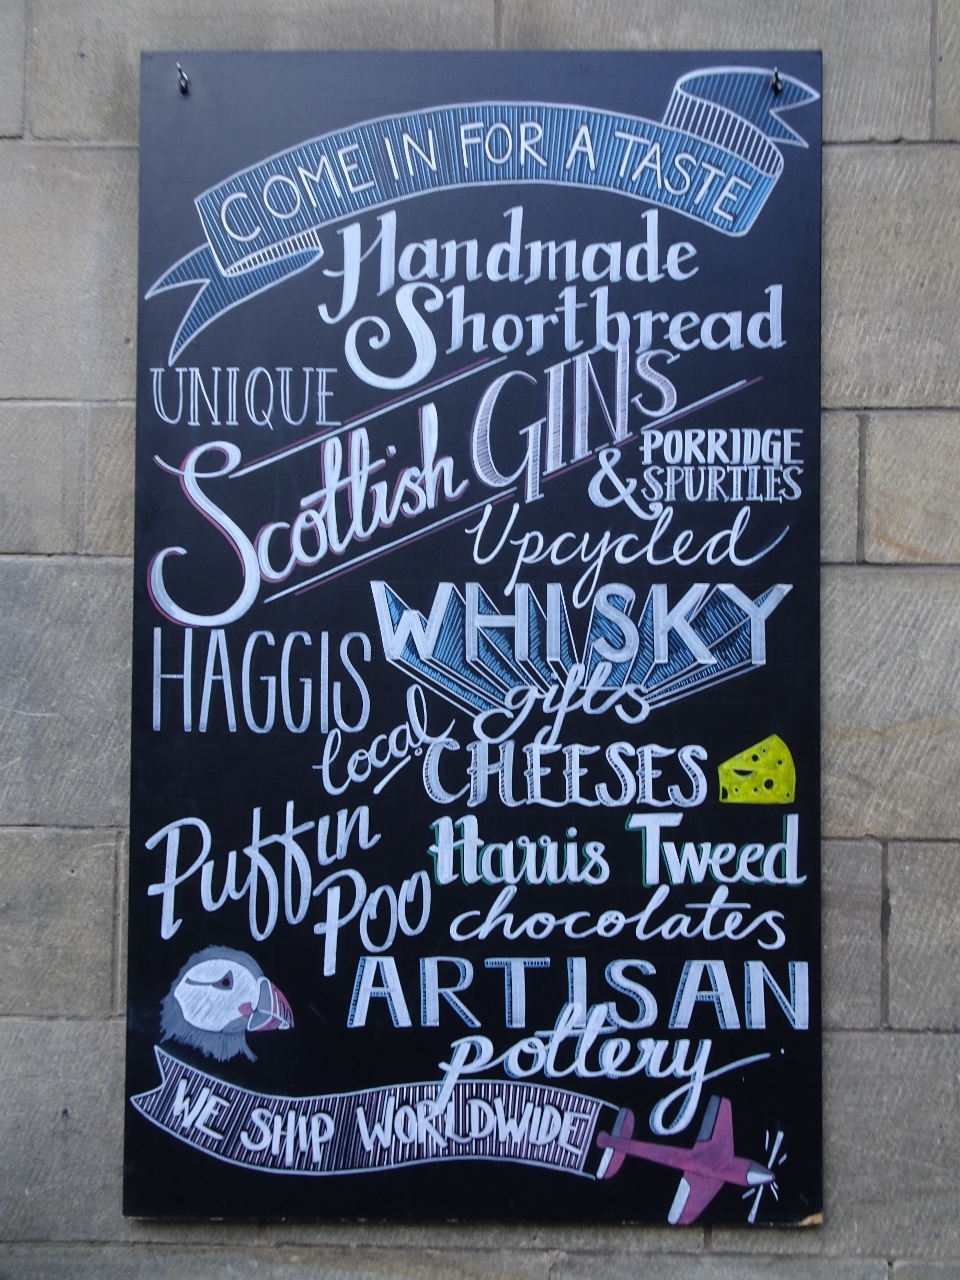 COME IN FOR A TASTE
Handmade
Shortbread
UNIQUE
Scottish GINS
& PORRIDGE
SPURTLES
Upcycled
WHISKY
gifts
HAGGIS
local CHEESES
Puffin
Poo
Harris Tweed
chocolates
ARTISAN
pottery
WE SHIP WORLDWIDE